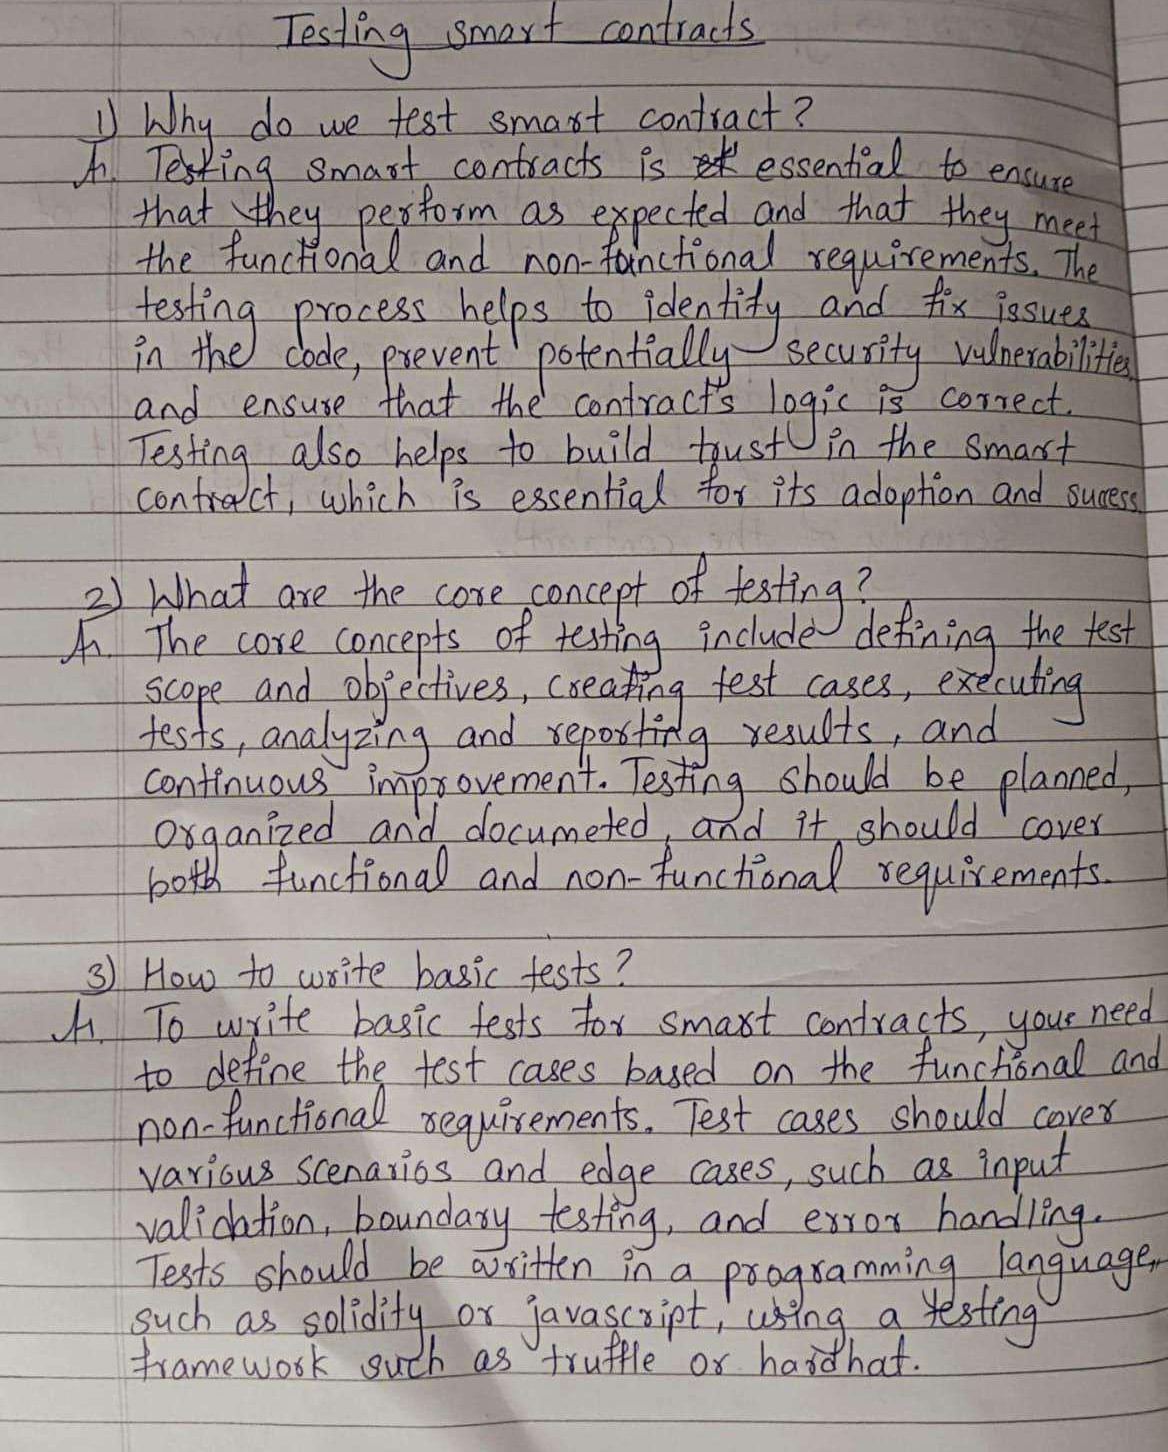 Testing smart contracts
1) Why do we test smart contract?
A. Testing smart contracts is essential to ensure
that they perform as expected and that they meet
the functional and non-functional requirements. The
testing process helps to identify and fix issues
in the code, prevent potentially security vulnerabilities
and ensure that the contract's logic is correct.
Testing also helps to build trust in the smart
contract, which is essential for its adoption and sucess
2) What are the core concept of testing?
A. The core concepts of testing include defining the test
scope and objectives, creating test cases, executing
tests, analyzing and reporting results, and
continuous improvement. Testing should be planned,
organized and documeted, and it should cover
both functional and non-functional requirements.
3) How to write basic tests?
A. To write basic tests for smart contracts, your need
to define the test cases based on the functional and
non-functional requirements. Test cases should cover
various scenarios and edge cases, such as input
validation, boundary testing, and error handling.
Tests should be written in a programming language,
such as solidity or javascript, using a testing
framework such as truffle or hardhat.